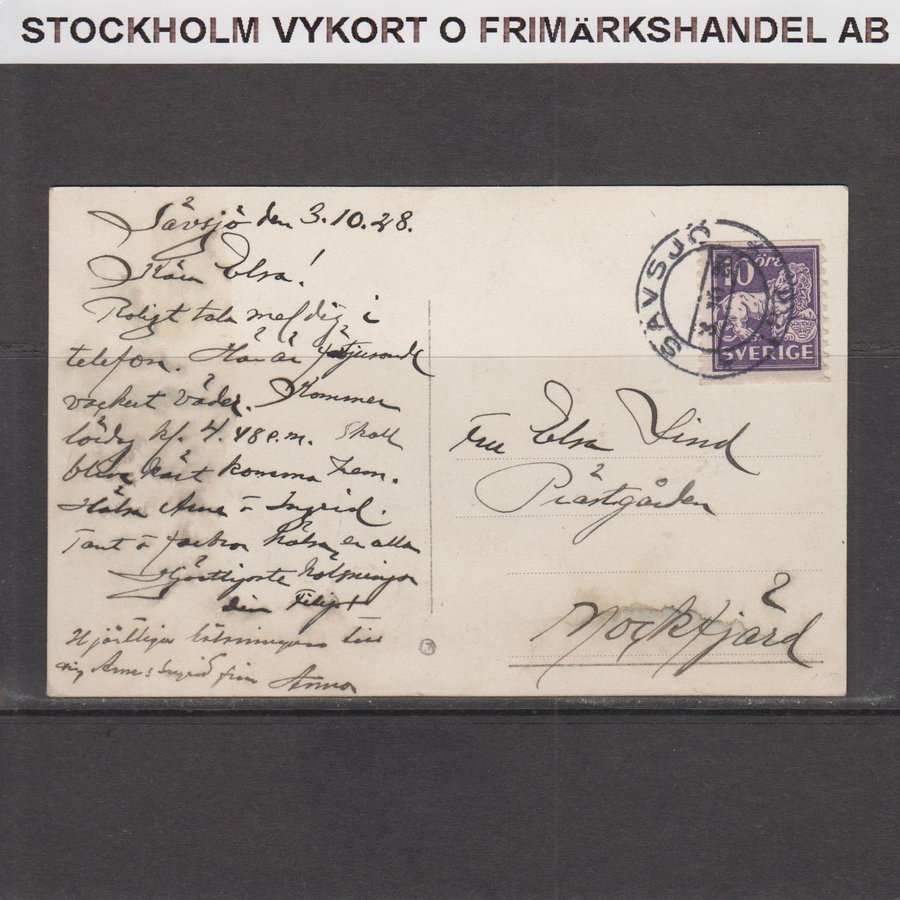 STOCKHOLM VYKORT O FRIMÄRKSHANDEL AB
Sävsjö den 3.10.28.
Kära Elsa!
Roligt tala med dig i
telefon. Här är tjusande
vackert väder. Kommer
lördag kl. 4.48 e.m. Skall
bliva kärt komma hem.
Hälsa Arne o Ingrid.
Tant o farbror hälsa er alla
Hjärtligaste hälsningar
din Filip
Hjärtliga hälsningar till
dig Arne o Ingrid från
Anna
SÄVSJÖ
10 öre
SVERIGE
Fru Elsa Lind
Prästgården
Mockfjärd